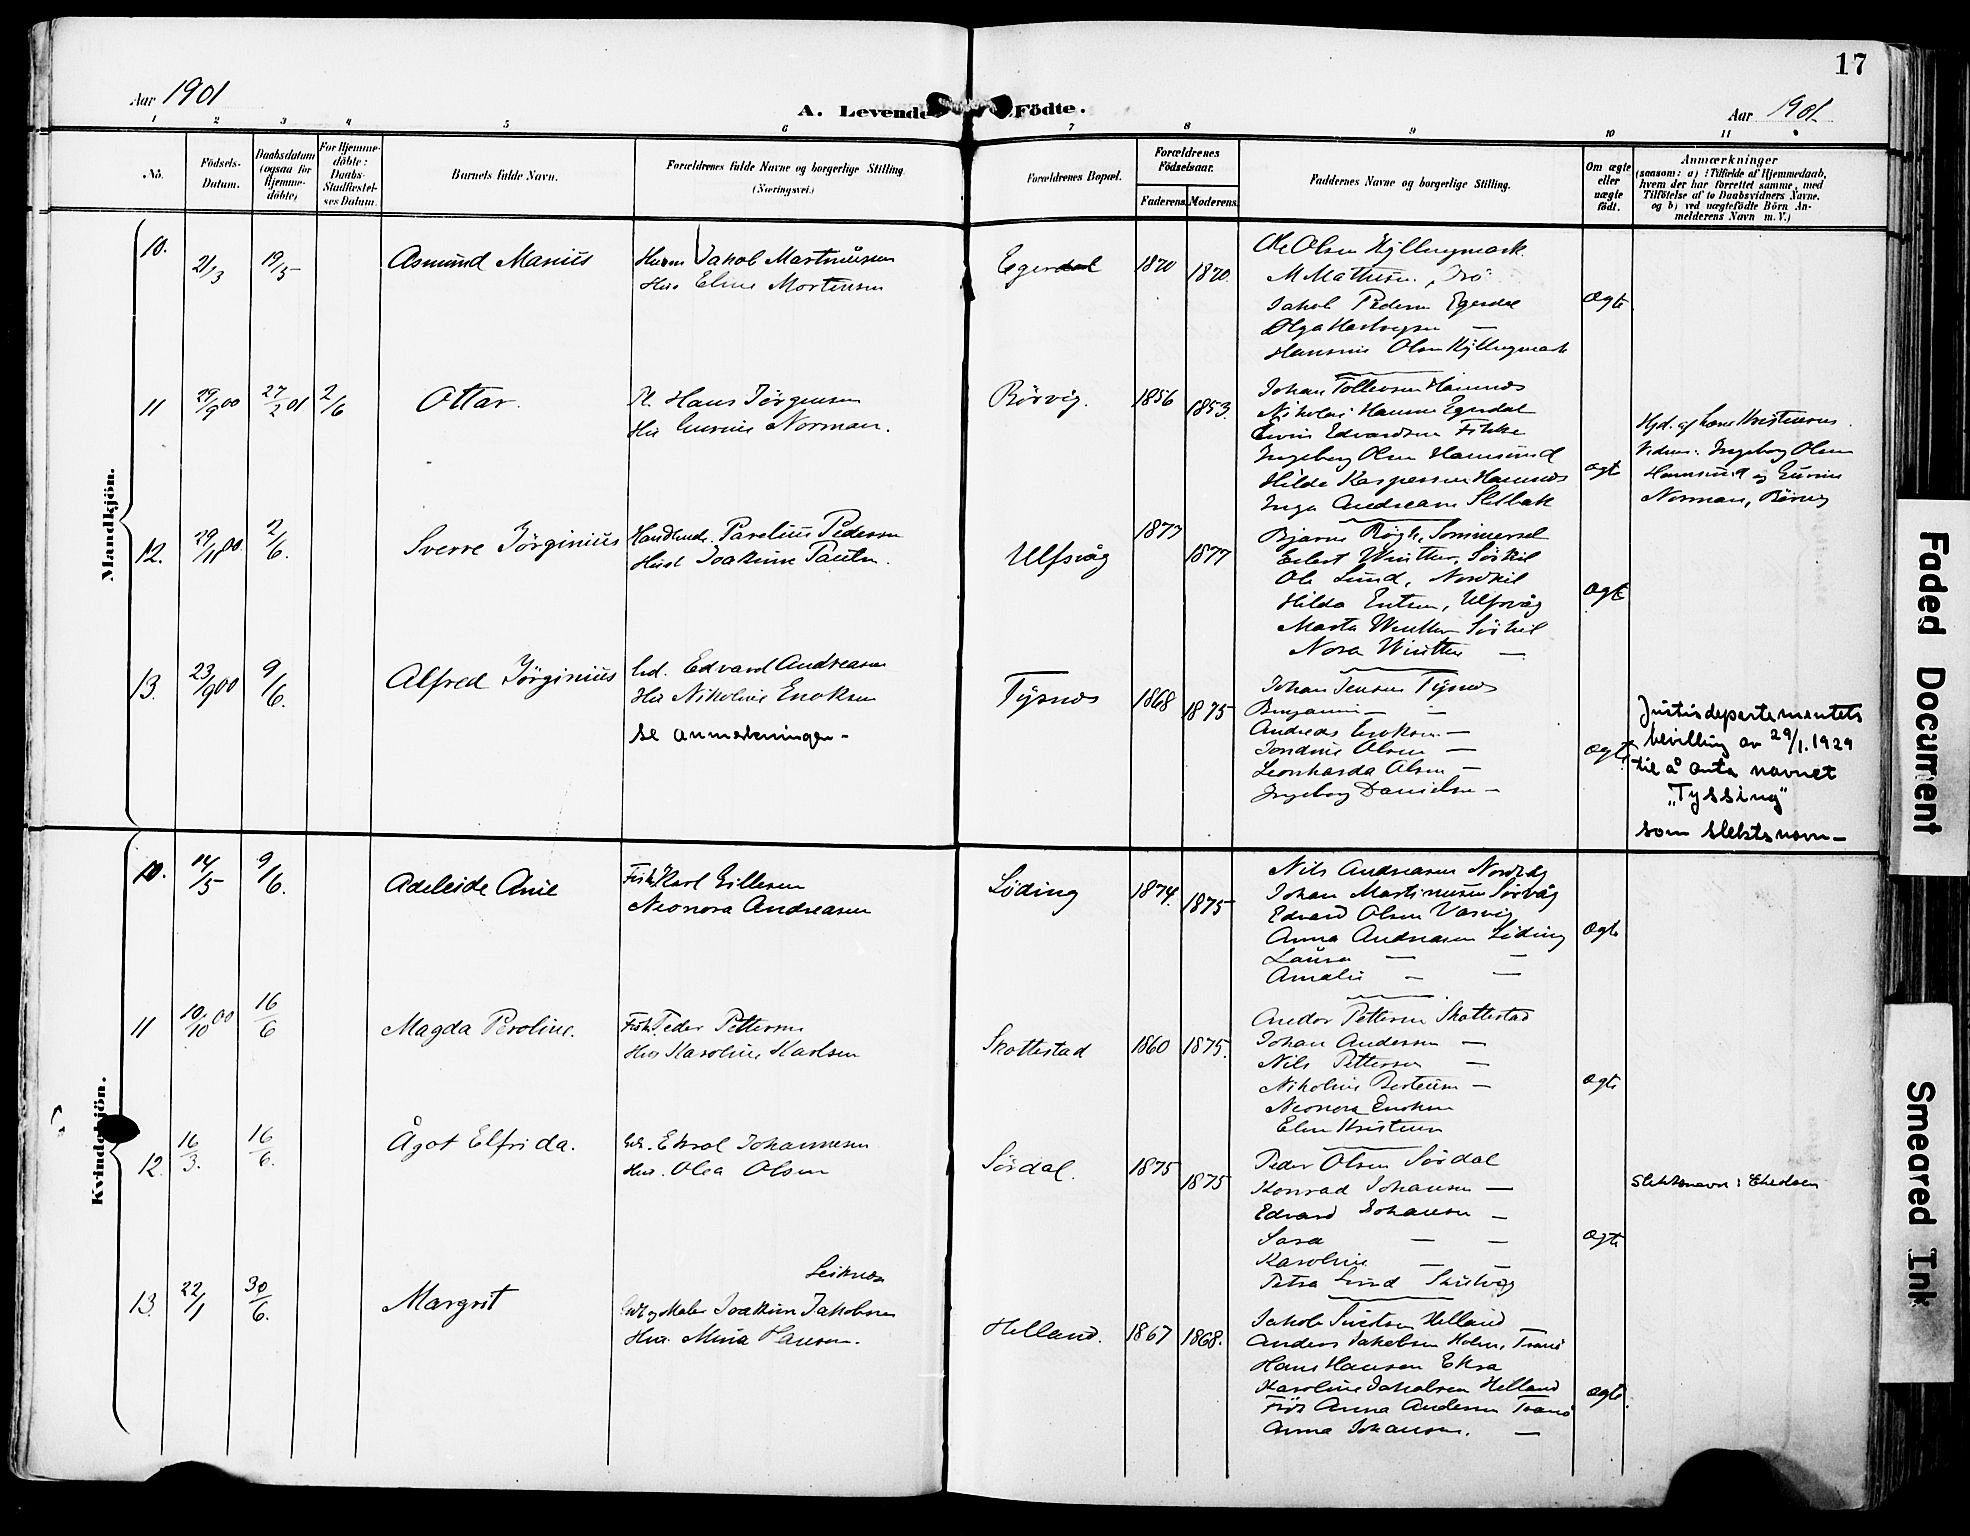 17
Aar 1901
A. Levende Födte.
Aar 1901
1 2 3 4 5 6 7 8 9 10 11
No.
Födsels-Datum.
Daabsdatum (ogsaa for Hjemmedöbte)
For Hjemmedöbte: Daabs-Stadfæstelses Datum.
Barnets fulde Navn.
Forældrenes fulde Navne og borgerlige Stilling. (Næringsvei.)
Forældrenes Bopæl.
Forældrenes Födselsaar.
Faderens. Moderens.
Faddernes Navne og borgerlige Stilling.
Om ægte eller uægte födt.
Anmærkninger
(saasom: a) i Tilfælde af Hjemmedaab,
hvem der har forrettet samme, med
Tilföielse af to Daabsvidners Navne,
og b) ved uægtefödte Börn An-
melderens Navn m. V.)
Mandkjön.
10. 21/3 19/5 Asmund Marius
Jakob Martinussen
Eline Mortensen
Egerdal 1870 1870
Ole Olsen Kjillingmark
M Mathisen
Jakob Pedersen Egerdal
Olga Hartvigsen —
Olsen Kjillingmark
Ægte
11 29/9 00 27/2 01 2/6 Ottar.
Hans Jørgensen
Norman.
Rörvig. 1856 1853.
Johan Tollevsen Hamnes
Nikolai Hansen Egerdal
Edvardsen
Ingeborg Olsen Hamsund
Hilda Kaspersen Hamnes
Inga Andreasen
ægte
Hjd. af
Ingeborg Olsen
Hamsund og
Norman, Rörvig
12. 29/11 00 2/6. Sverre Jörginius
Parelius Pedersen
Hust Joakime
Ulfsvåg 1873 1877
Bjarne Sommersel
Winther, Sörkil
Ole Lund, Nordkil
Hilda Ulfsvåg
Marta Winther Sörkil
Nora Winther —
Ægte
13. 23/9 00 9/6. Alfred Jörginius
Edvard Andreasen
Nikoline Enoksen
se anmerkningen —
Tysnes 1868 1875
Johan Jensen Tysnes
Benjamin — —
Andreas Enoksen —
Jondine Olsen —
Leonharda Olsen —
Ingeborg Danielsen —
ægte
Justisdepartementets
bevilling av 29/1. 1929
til å anta navnet
„Tyssing"
som slektsnavn —
Kvindekjön.
10. 14/5 9/6. Adeleide Anie
Fisk. Karl Gillesen
Neonora Andreasen
Löding 1874. 1875
Nils Andreasen
Johan Martinusen Sörvåg
Edvard Olsen
Anna Andreasen Löding
Laura — —
Amalie — —
ægte
11 10/10 00 16/6 Magda Peroline.
Fisk. Peder Pettersen
Karoline Karlsen
Skottestad 1860 1875.
Andor Pettersen Skottestad
Johan Andersen —
Nils Pettersen —
Nikoline Berteusen —
Neonora Enoksen
Kristensen
ægte
12. 16/3. 16/6. Ågot Elfrida.
Johannesen
Olea Olsen
Sördal. 1875 1875
Peder Olsen Sördal
Konrad Johansen —
Edvard Johansen —
Sara — —
Karoline — —
Petra Lund
ægte
Slektsnavn:
13. 22/1 30/6. Margrit
Leiknes
Joakim Jakobsen
Mina Hansen.
Helland. 1867 1868.
Jakob Helland
Anders Jakobsen Holm, Tranö
Hans Hansen
Karoline Jakobsen Helland
Anna Andersen Tranö
Anna Johansen. —
ægte.
Faded Document
Smeared Ink